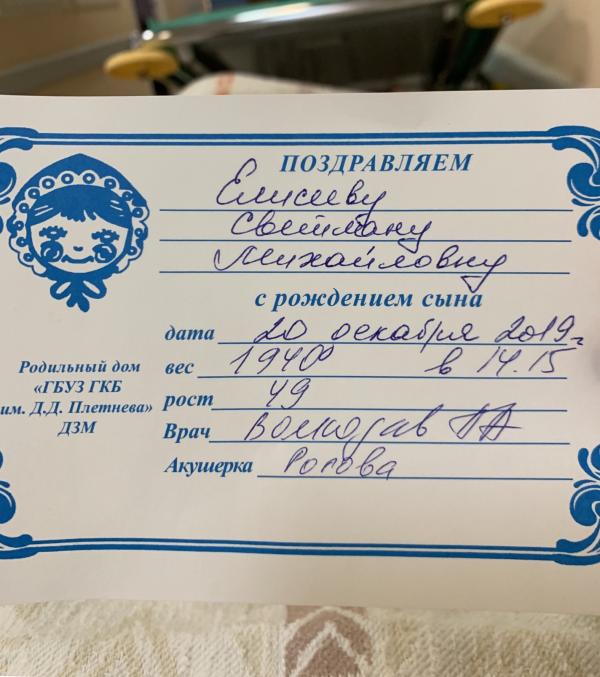 ПОЗДРАВЛЯЕМ
Елисееву
Светлану
Михайловну
с рождением сына
дата 20 декабря 2019г
вес 1940 в 14.15
рост 49
Врач Волкодав
Акушерка
Родильный дом
«ГБУЗ ГКБ
им. Д.Д. Плетнева»
ДЗМ